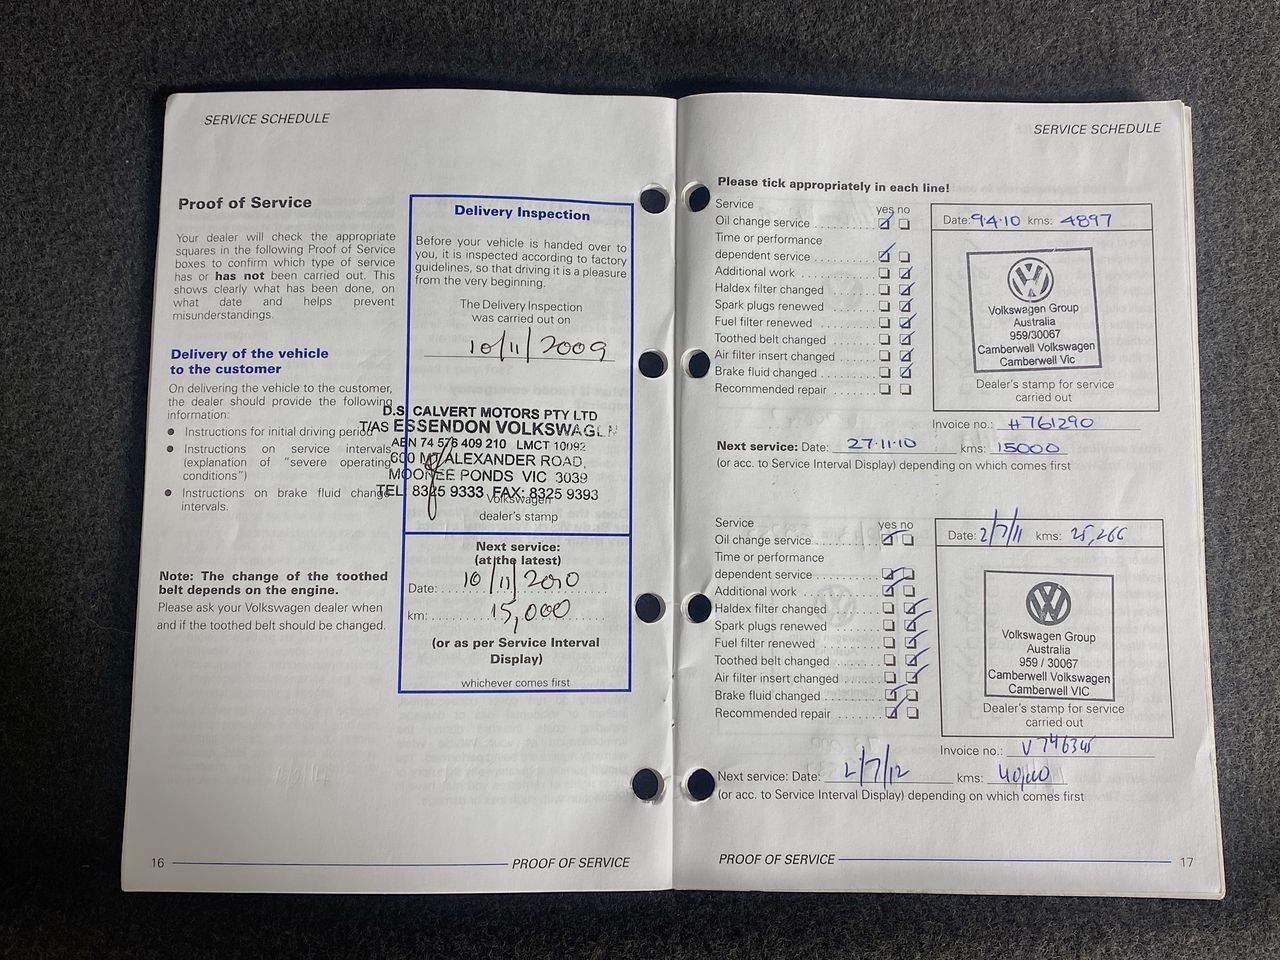 SERVICE SCHEDULE
Proof of Service
Your dealer will check the appropriate
squares in the following Proof of Service
boxes to confirm which type of service
has or has not been carried out. This
shows clearly what has been done, on
what date and helps prevent
misunderstandings.
Delivery of the vehicle
to the customer
On delivering the vehicle to the customer,
the dealer should provide the following
information:
● Instructions for initial driving period
● Instructions on service intervals
(explanation of “severe operating
conditions”)
● Instructions on brake fluid change
intervals.
Note: The change of the toothed
belt depends on the engine.
Please ask your Volkswagen dealer when
and if the toothed belt should be changed.
Delivery Inspection
Before your vehicle is handed over to
you, it is inspected according to factory
guidelines, so that driving it is a pleasure
from the very beginning.
The Delivery Inspection
was carried out on
10/11/2009
D.S. CALVERT MOTORS PTY LTD
T/AS ESSENDON VOLKSWAGEN
ABN 74 576 409 210 LMCT 10092
600 MT ALEXANDER ROAD,
MOONEE PONDS VIC 3039
TEL: 8325 9333 FAX: 8325 9393
Volkswagen
dealer's stamp
Next service:
(at the latest)
Date: 10/11/2010
km: 15,000
(or as per Service Interval
Display)
whichever comes first
16 PROOF OF SERVICE
SERVICE SCHEDULE
Please tick appropriately in each line!
Service yes no
Oil change service
Time or performance
dependent service
Additional work
Haldex filter changed
Spark plugs renewed
Fuel filter renewed
Toothed belt changed
Air filter insert changed
Brake fluid changed
Recommended repair
Date: 9.4.10 kms: 4897
Volkswagen Group
Australia
959/30067
Camberwell Volkswagen
Camberwell Vic
Dealer's stamp for service
carried out
Invoice no.: #761290
Next service: Date: 27.11.10 kms: 15000
(or acc. to Service Interval Display) depending on which comes first
Service yes no
Oil change service
Time or performance
dependent service
Additional work
Haldex filter changed
Spark plugs renewed
Fuel filter renewed
Toothed belt changed
Air filter insert changed
Brake fluid changed
Recommended repair
Date: 2/7/11 kms: 25,266
Volkswagen Group
Australia
959 / 30067
Camberwell Volkswagen
Camberwell VIC
Dealer's stamp for service
carried out
Invoice no.: V746345
Next service: Date: 2/7/12 kms:
(or acc. to Service Interval Display) depending on which comes first
PROOF OF SERVICE 17